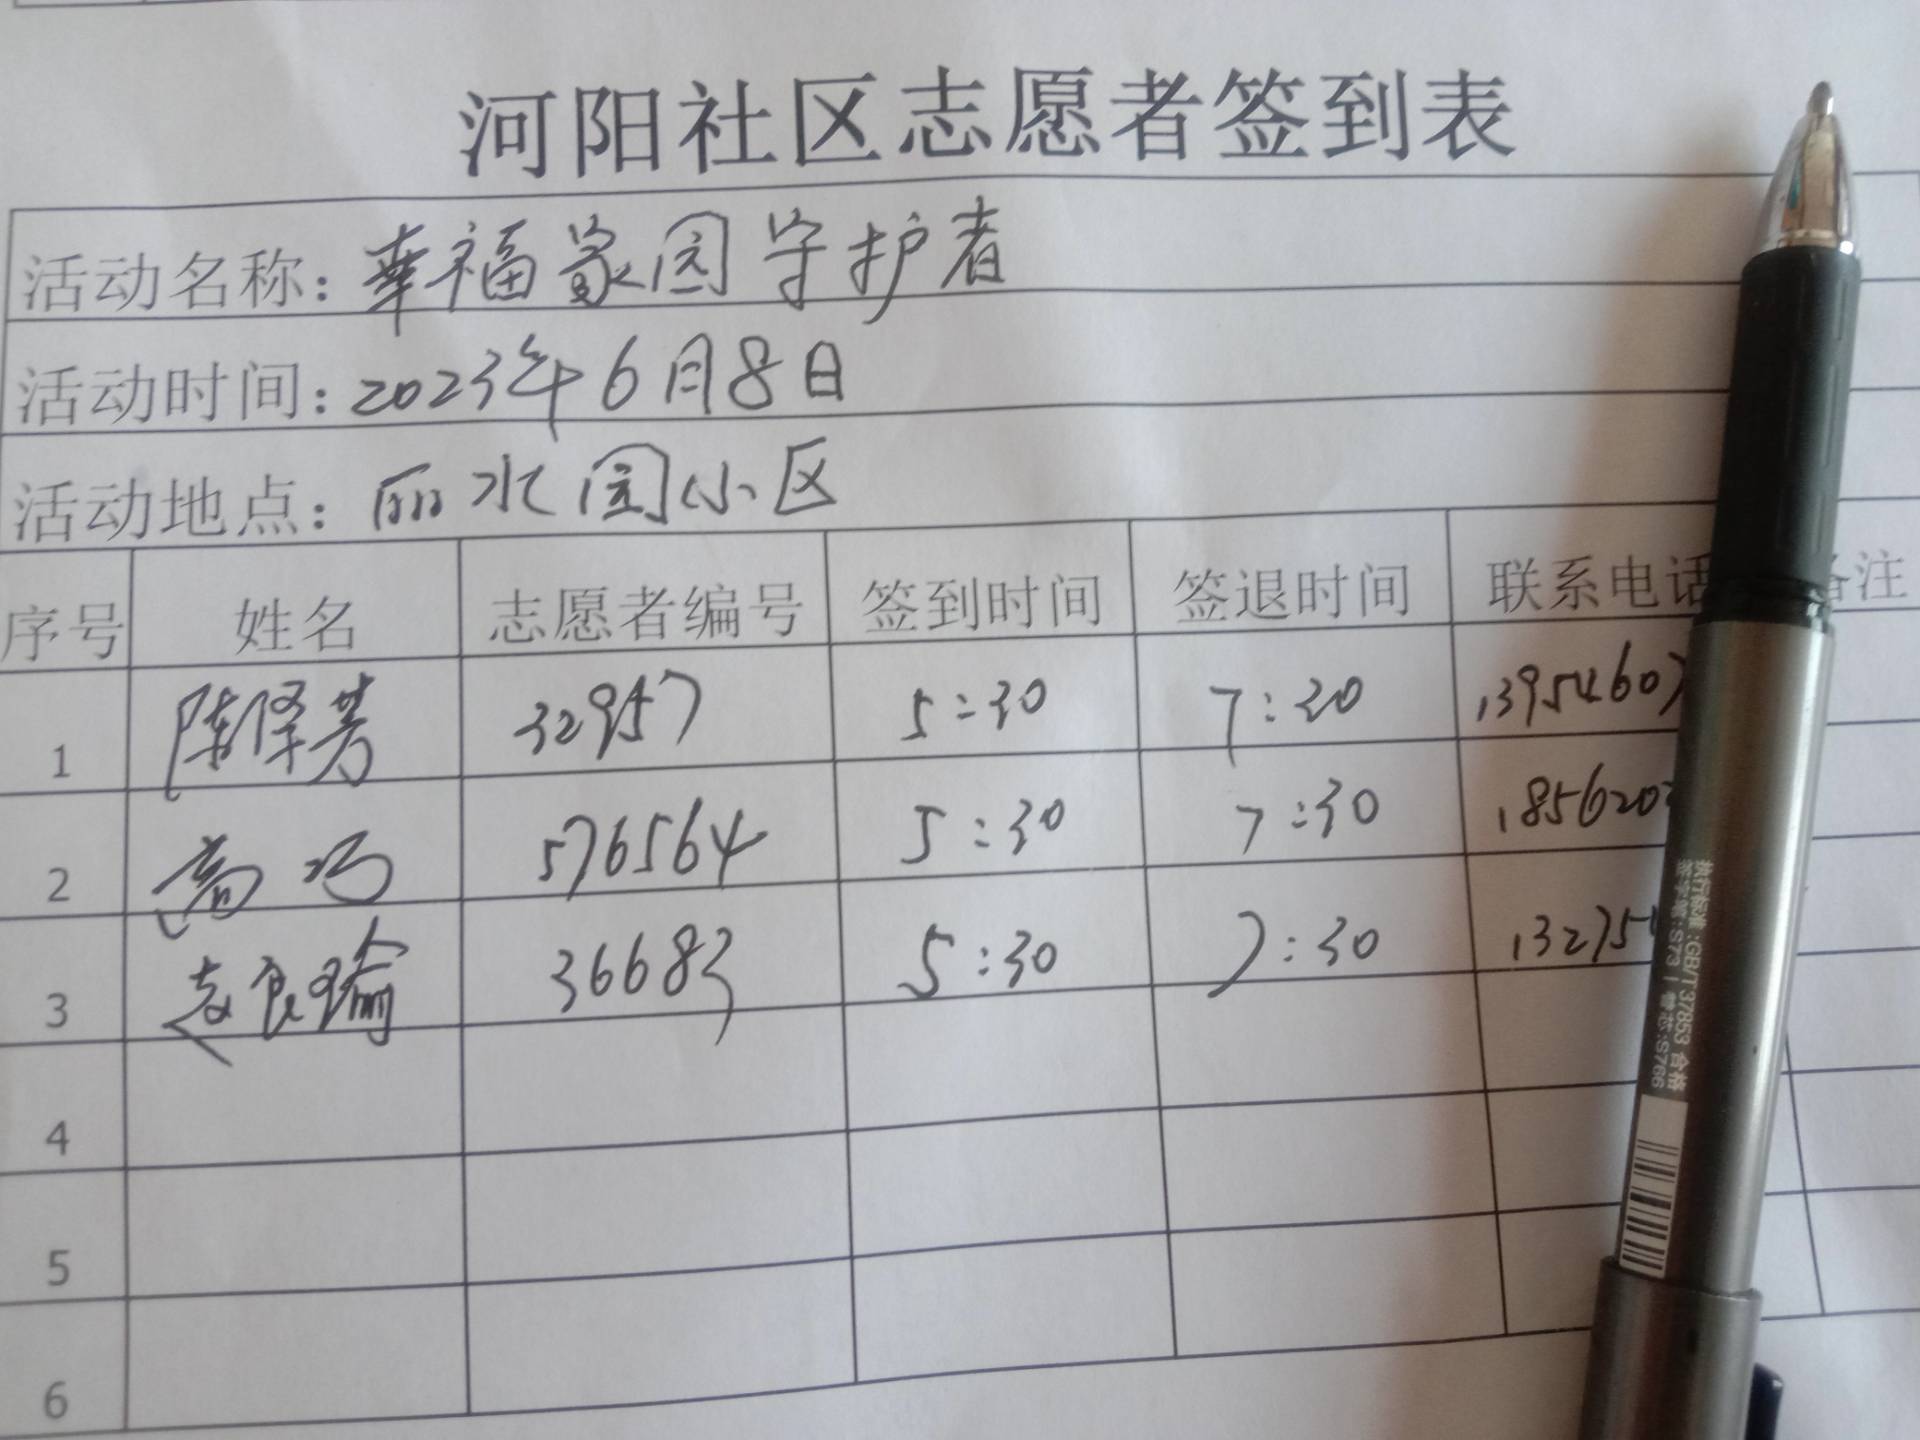 河阳社区志愿者签到表
活动名称：幸福家园守护者
活动时间：2023年6月8日
活动地点：丽水园小区
序号 姓名 志愿者编号 签到时间 签退时间 联系电话 备注
1 陈泽芳 32957 5:30 7:30 13954607
2 高巧 576564 5:30 7:30 1856202
3 志良瑜 36683 5:30 7:30 13275
4
5
6
执行标准:GB/T 37853 合格
签字笔:S73 | 替芯:S766